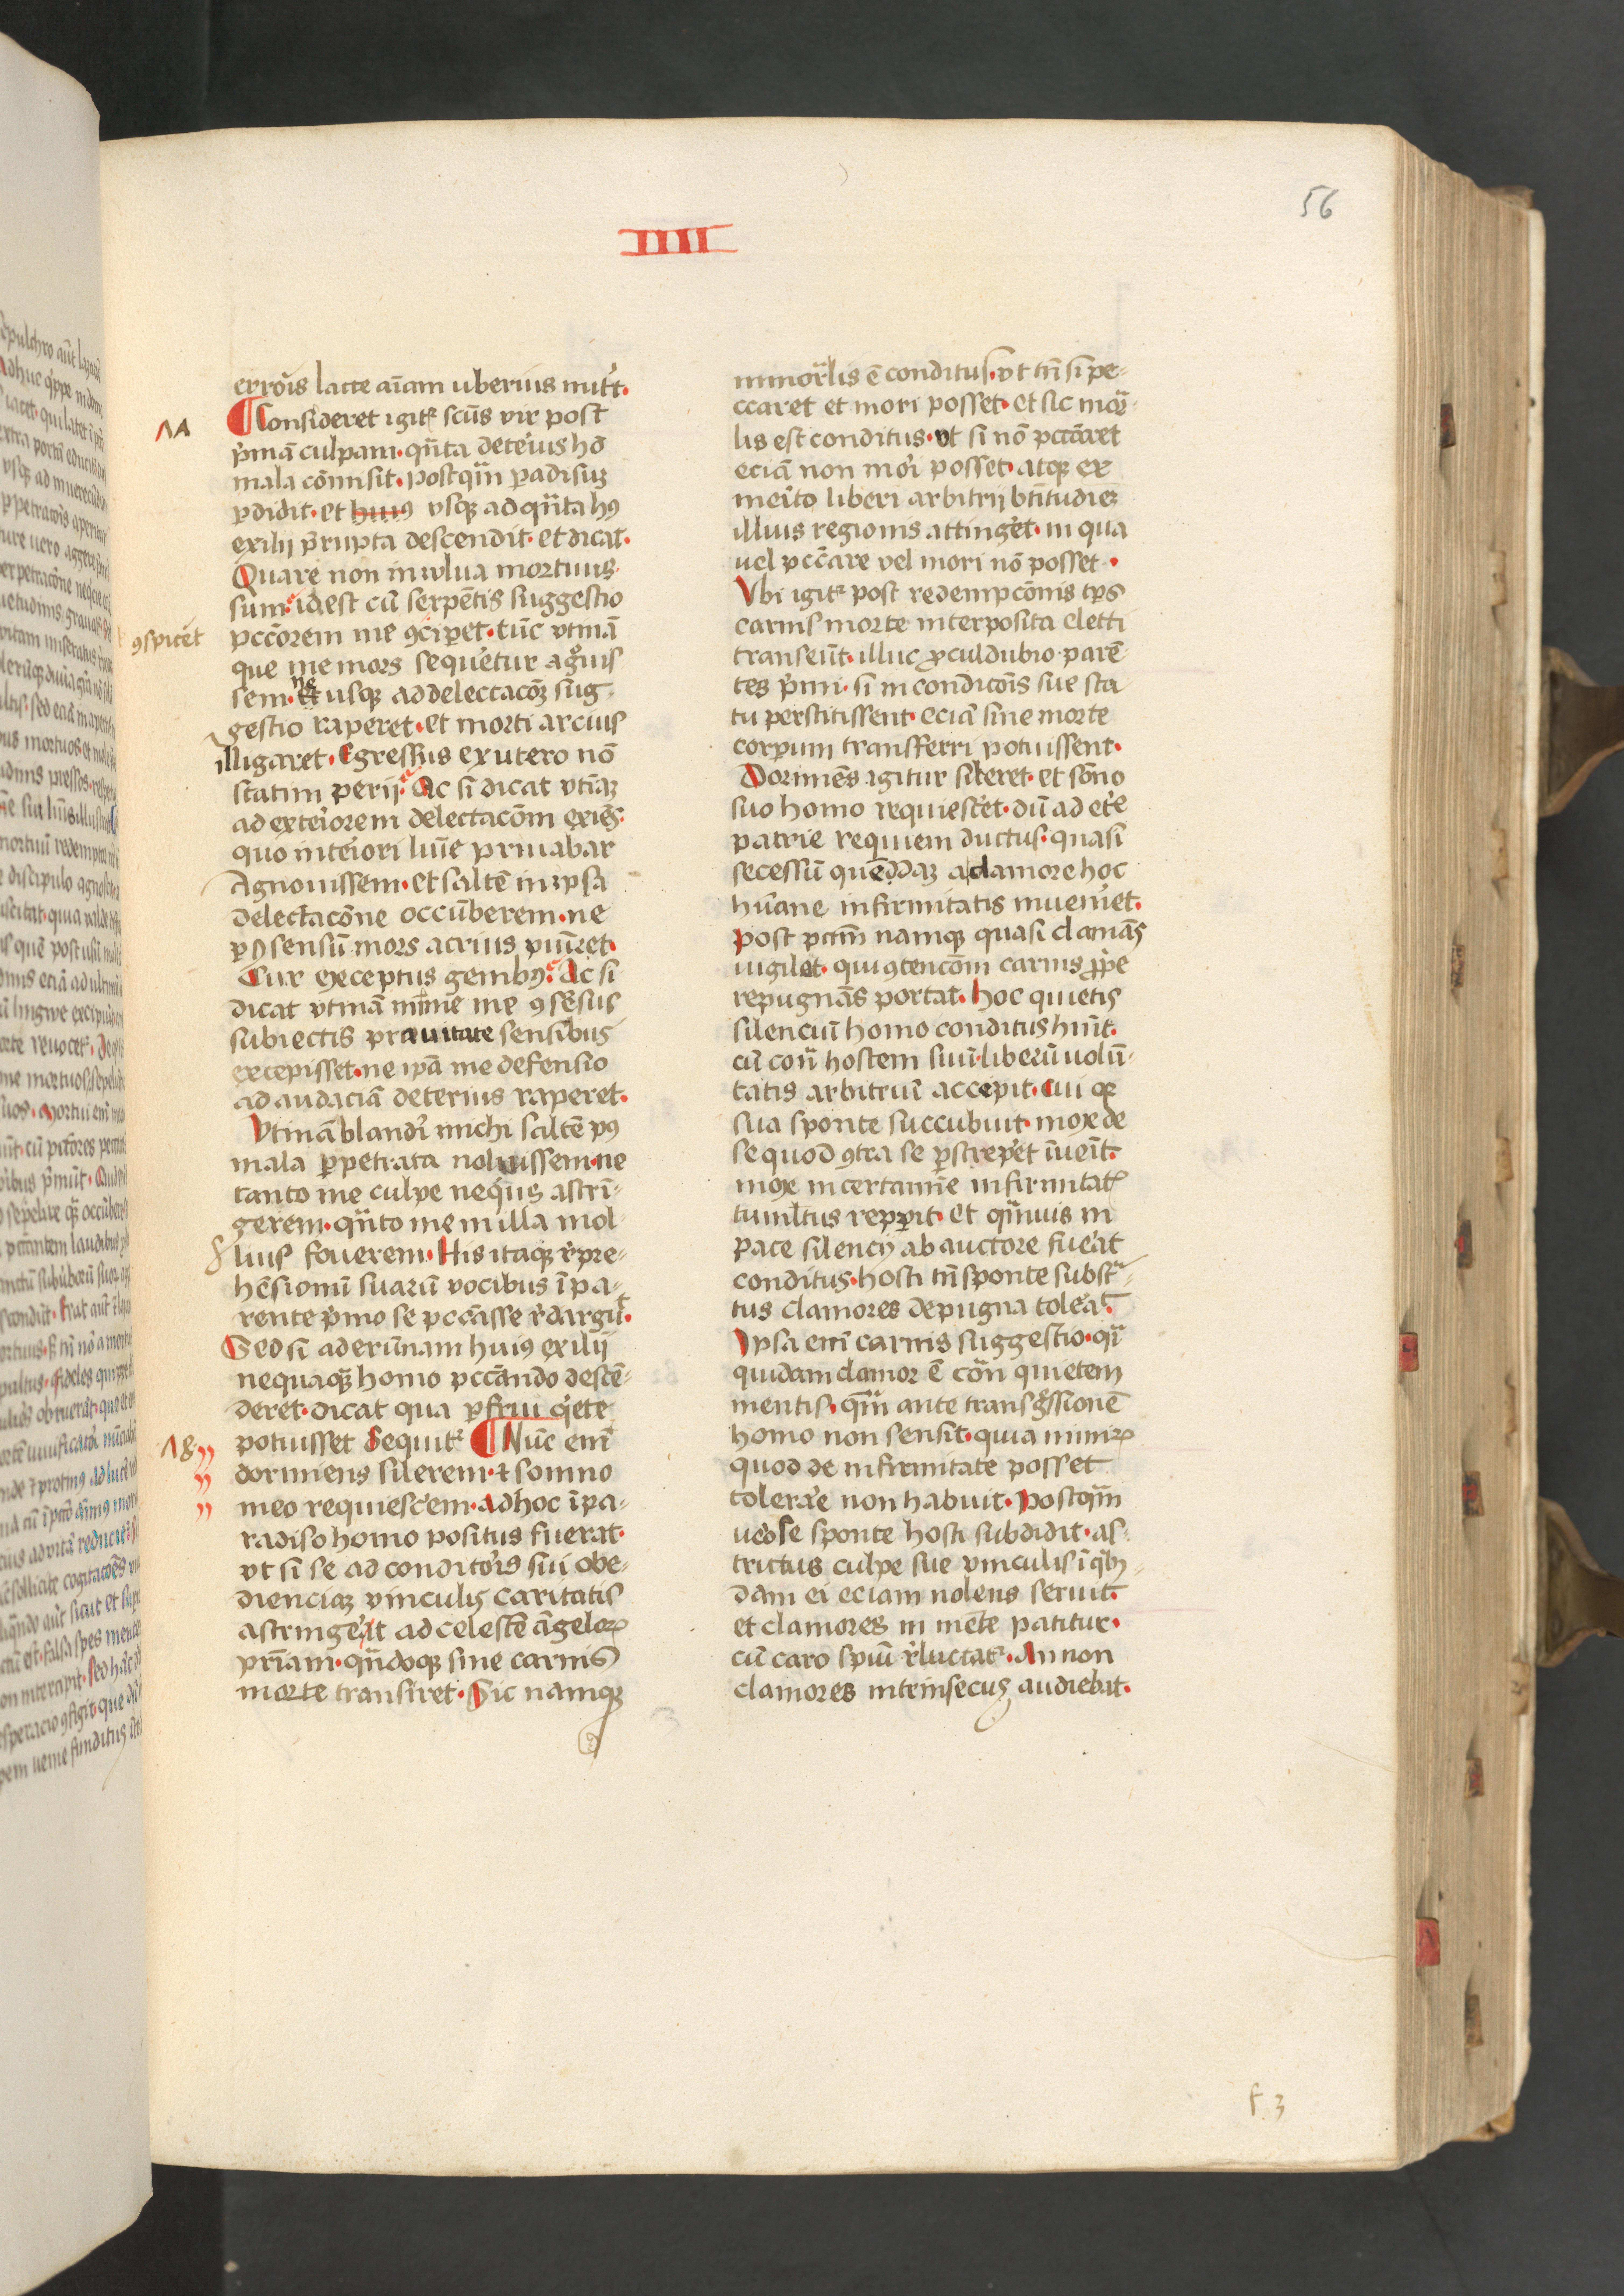 56
IIII
erroris lacte aīam uberius nutˀt.
¶ Consideret igitˀ scūs vir post
p̄mā culpam. qn̄ta deteˀius hō
mala cōmisit. postqm̄ ꝑadisuꝫ
ꝑdidit. et huiꝰ vsqꝫ ad qn̄ta hꝰ
exilij p̄rupta descendit. et dicat.
Quare non in wlua mortuus
sum. id est cū serpētis suggestio
pctōrem me ꝯciꝑet. tūc vtinā
ꝯspicˀet
que me mors sequˀetur agˀuis
sem. ne usqꝫ ad delectacōꝫ sug
gestio raperet. et morti arcius
illigaret. Egressus ex utero nō
statim perij. Ac si dicat vtinā
ad exteˀiorem delectacōm exiēs.
quo inteˀiori lūīe priuabar
Agnouissem. et saltē in ipsa
delectacōne occūberem. ne
ꝑ ꝯsensū mors acrius pūīret.
Cur exceptus genibꝰ. Ac si
dicat vtinā mīīme me ꝯsēsus
subiectis prauitate sensibus
excepisset. ne ip̄ā me defensio
ad audaciā deterius raperet.
Vtinā blandˀi michi saltē pꝰ
mala ꝑpetrata noluissem. ne
tanto me culpe nequˀis astrī-
gerem. qn̄to me in illa mol
lius fouerem. His itaqꝫ rˀpre-
hēsionū suarū vocibus ī pa-
rente pˀmo se pccāsse rˀdarguˀt.
Sed si ad erūnam huiꝰ exilij
nequaqꝫ homo pccādo descē-
deret. dicat qua ꝑfrui qˀete
potuisset Sequitˀ ¶ Nūc enī
dormiens silerem. ⁊ somno
meo requiescˀem. Ad hoc ī pa-
radiso homo positus fuerat.
vt si se ad conditoˀis sui obe-
dienciaꝫ vinculis caritatis
astringeˀet ad celestē āgeloꝝ
pr̄iam. qn̄doqꝫ sine carnis
morte transiret. Sic namqꝫ
immortˀlis ē conditus. vt tn̄ si pe-
ccaret et mori posset. et sic morˀ
lis est conditus. vt si nō pccāret
eciā non moˀi posset. atqꝫ ex
meˀito liberi arbitrij btītudieꝫ
illius regionis attingˀet. in qua
uel pccāre vel mori nō posset.
Vbi igitˀ post redempcōnis tp̄s
carnis morte interposita eletti
transeūt. illuc ꝓculdubio parē-
tes pˀmi. si in condicōis sue sta
tu perstitissent eciā sine morte
corꝑum transferri potuissent.
Dormiēs igitur sileret. et sōno
suo homo requiescˀet. dū ad etˀe
patrie requiem ductus. quasi
secessū quēdaꝫ a clamore hoc
hūane infirmitatis inuenˀet.
Post pctm̄ namqꝫ quasi clamās
uigilet. qui ꝯtencōm carnis ꝓpˀe
repugnās portat. hoc quietis
silenciū homo conditus hūit.
cū cont̄ hostem suū. liberū uolū-
tatis arbitriū accepit. Cui qꝫ
sua sponte succubuit. mox de
se quod ꝯtra se ꝑstrepˀet īueīt.
mox in certamīe infirmitatˀ
tumltus repꝑit. et qm̄uis in
pace silencij ab auctore fueˀat
conditus. hosti tn̄ sponte substˀ-
tus clamores de pugna toleˀat.
Ipsa enī carnis suggestio. qˀi
quidam clamor ē contˀ quietem
mentis. qm̄ ante transgˀssionē
homo non sensit. quia nimiꝝ
quod de infirmitate posset
tolerāˀe non habuit. Postqm̄
ueˀo se sponte hosti subdidit. as
trictus culpe sue vinculis ī qˀbꝰ-
dam ei eciam nolens seruit.
et clamores in mēte patitur.
cū caro spūi rˀluctatˀ. An non
clamores intrinsecus audiebat.
f. 3